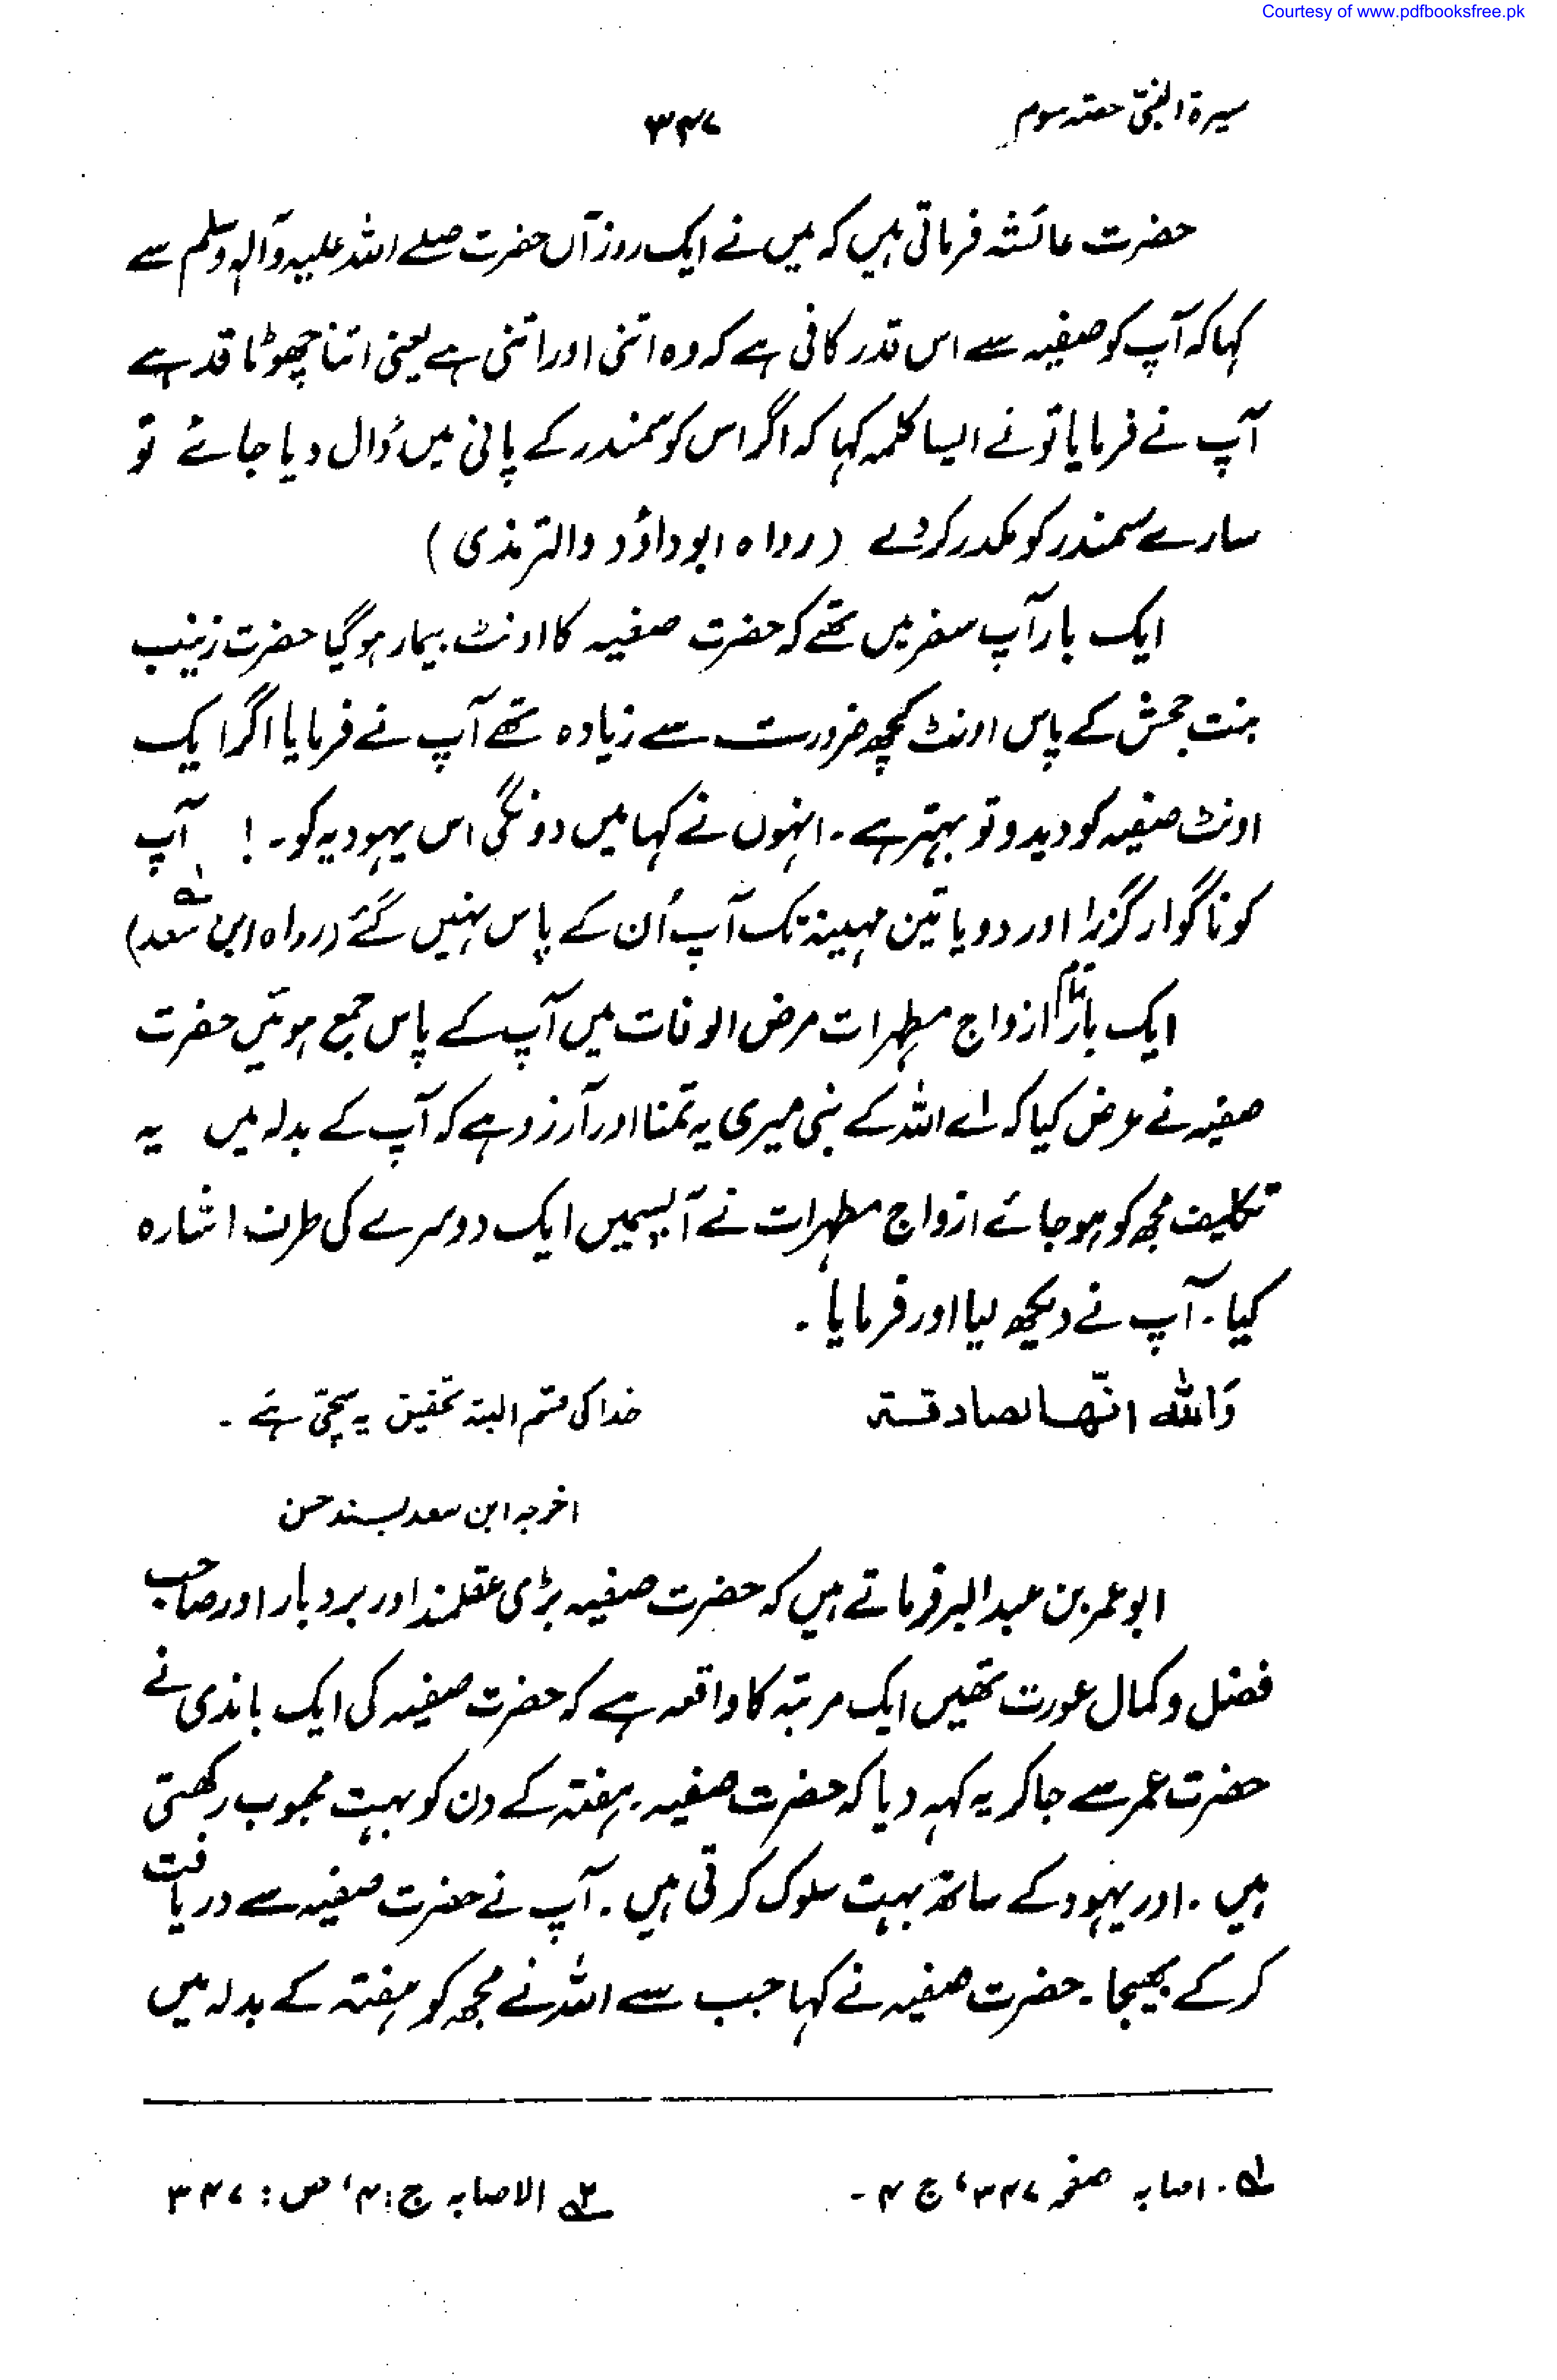 Courtesy of www.pdfbooksfree.pk
سیرۃ النبیؐ حصہ سوم
۳۴۷
حضرت عائشہ فرماتی ہیں کہ میں نے ایک روز آں حضرت صلے اللہ علیہ وآلہٖ وسلم سے
کہا کہ آپ کو صفیہ سے اس قدر کافی ہے کہ وہ اتنی اور اتنی ہے یعنی اتنا چھوٹا قد ہے
آپ نے فرمایا تو نے ایسا کلمہ کہا کہ اگر اس کو سمندر کے پانی میں ڈال دیا جائے تو
سارے سمندر کو مکدر کر دے (رواہ ابو داؤد والترمذی)
ایک بار آپ سفر میں تھے کہ حضرت صفیہ کا اونٹ بیمار ہو گیا حضرت زینب
بنت جحش کے پاس اونٹ کچھ ضرورت سے زیادہ تھے آپ نے فرمایا اگر ایک
اونٹ صفیہ کو دیدو تو بہتر ہے ۔ انہوں نے کہا میں دونگی اس یہودیہ کو ۔ ! آپ
کو ناگوار گزرا اور دو یا تین مہینہ تک آپ اُن کے پاس نہیں گئے (رواہ ابن سعد) ؎۱
ایک بار تمام ازواج مطہرات مرض الوفات میں آپ کے پاس جمع ہوئیں حضرت
صفیہ نے عرض کیا کہ اے اللہ کے نبی میری یہ تمنا اور آرزو ہے کہ آپ کے بدلہ میں یہ
تکلیف مجھ کو ہو جائے ازواج مطہرات نے آپسمیں ایک دوسرے کی طرف اشارہ
کیا ۔ آپ نے دیکھ لیا اور فرمایا ۔
وَاللہ انّھا لصادقۃ خدا کی قسم البتہ تحقیق یہ سچّی ہے ۔
اخرجہ ابن سعد بسند حسن
ابو عمر بن عبد البر فرماتے ہیں کہ حضرت صفیہ بڑی عقلمند اور بردبار اور صاحب
فضل و کمال عورت تھیں ایک مرتبہ کا واقعہ ہے کہ حضرت صفیہ کی ایک باندی نے
حضرت عمر سے جا کر یہ کہہ دیا کہ حضرت صفیہ ۔ ہفتہ کے دن کو بہت محبوب رکھتی
ہیں ۔ اور یہود کے ساتھ بہت سلوک کرتی ہیں ۔ آپ نے حضرت صفیہ سے دریافت
کر کے بھیجا ۔ حضرت صفیہ نے کہا جب سے اللہ نے مجھ کو ہفتہ کے بدلہ میں
؎۱ ۔ اصابہ صفحہ ۳۴۷، ج ۴ ۔ ؎۲ الاصابہ ج : ۴، ص : ۳۴۷